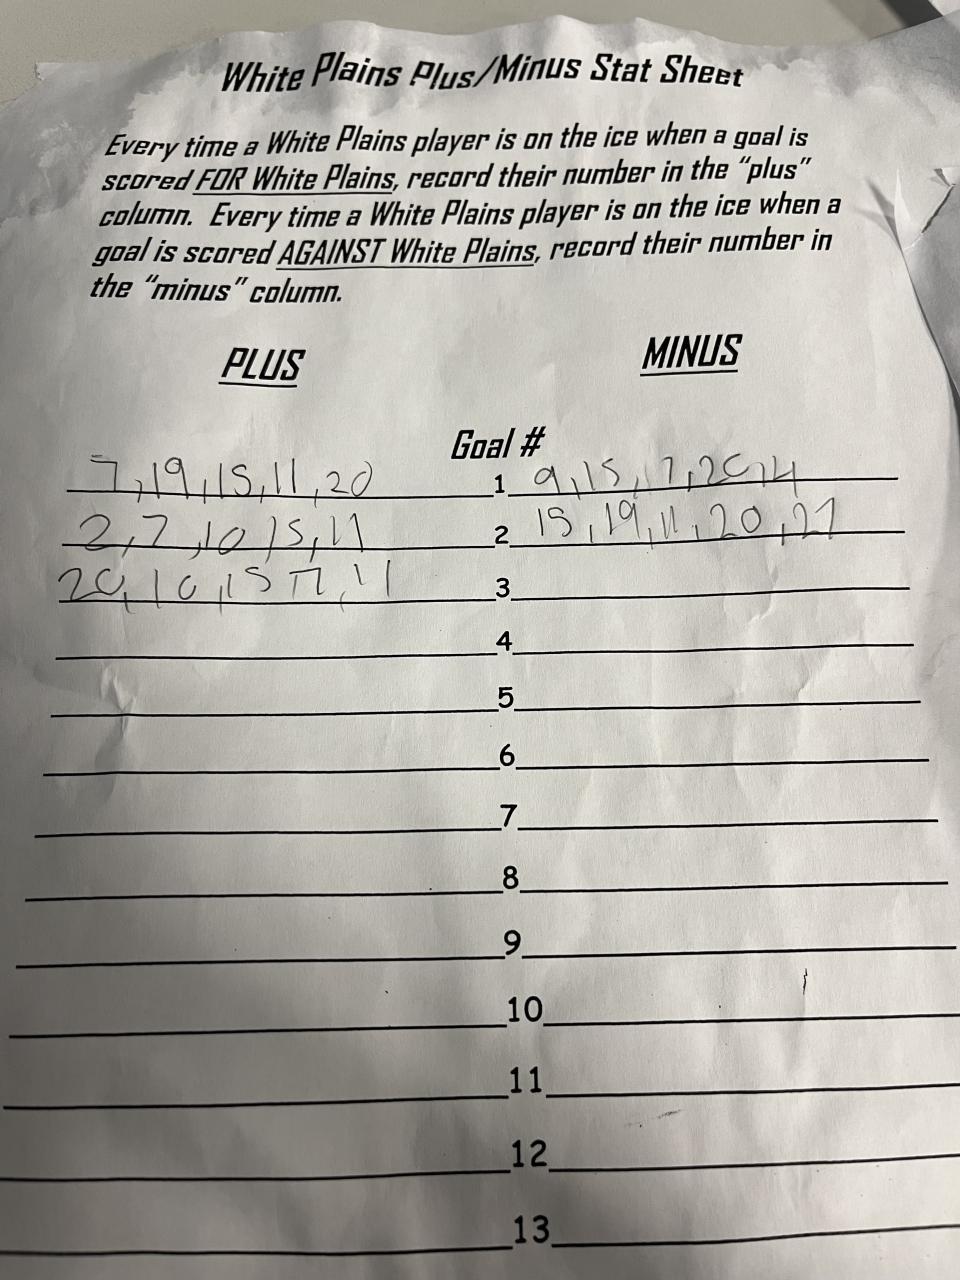 White Plains Plus/Minus Stat Sheet
Every time a White Plains player is on the ice when a goal is
scored FOR White Plains, record their number in the "plus"
column. Every time a White Plains player is on the ice when a
goal is scored AGAINST White Plains, record their number in
the "minus" column.
PLUS MINUS
Goal #
7,19,15,11,20 1 9,15,17,20,14
2,7,10,15,11 2 15,19,11,20,27
20,10,15 17,11 3
4
5
6
7
8
9
10
11
12
13